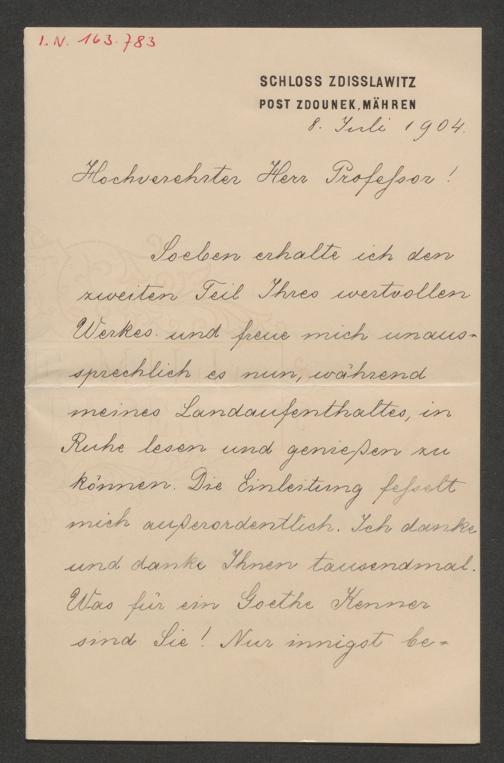 I.N. 163.783
SCHLOSS ZDISSLAWITZ
POST ZDOUNEK, MÄHREN
8. Juli 1904.
Hochverehrter Herr Professor!
Soeben erhalte ich den
zweiten Teil Ihres wertvollen
Werkes und freue mich unaus=
sprechlich es nun, während
meines Landaufenthaltes, in
Ruhe lesen und genießen zu
können. Die Einleitung fesselt
mich außerordentlich. Ich danke
und danke Ihnen tausendmal.
Was für ein Goethe Kenner
sind Sie! Nur innigst be=